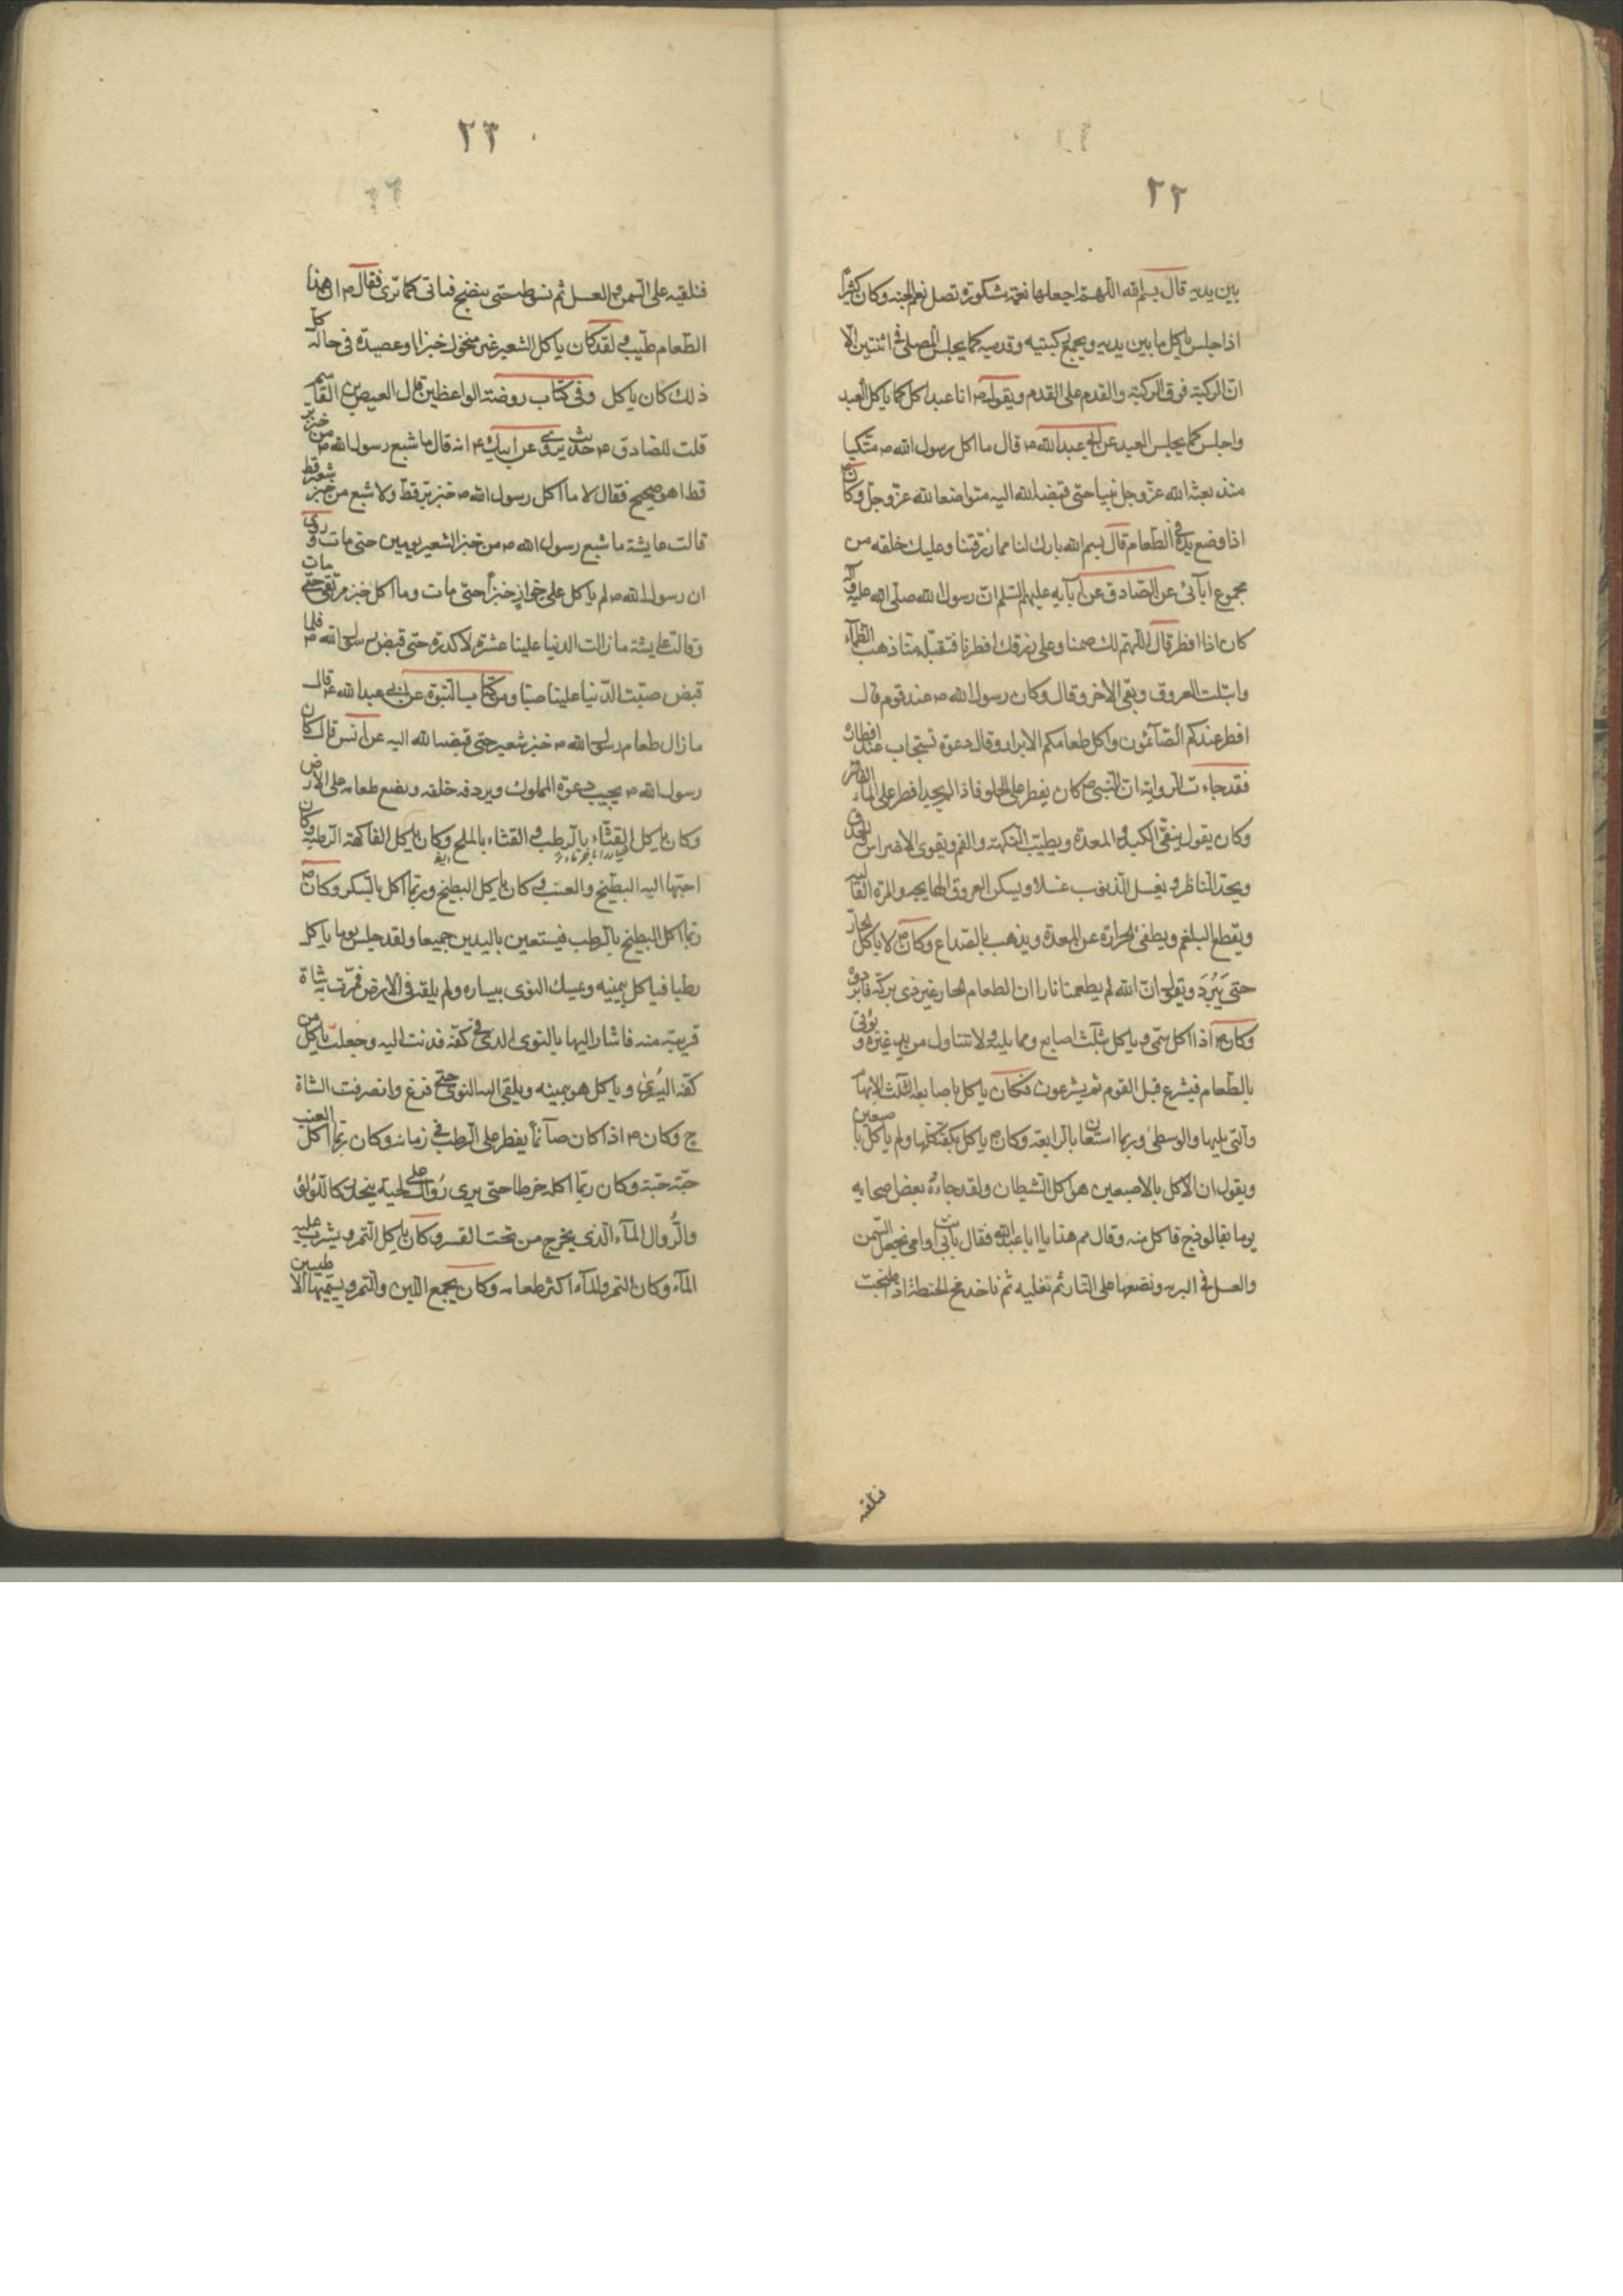 ٢٢
بين يديه قال بسم الله اللهم اجعلها نعمة مشكورة تصل نعم الجنه وكان كثيراً
اذا جلس ياكل ما بين يديه ويجمع ركبتيه وقدميه كما يجلس المصلى فى اثنتين الا
ان الركبة فوق الركبة والقدم على القدم ويقول ص انا عبد اكل كما ياكل العبد
واجلس كما يجلس العبد عن ابى عبد الله ع قال ما اكل رسول الله ص متكيا
منذ بعثه الله عز وجل نبيا حتى قبضه الله اليه متواضعا لله عز وجل وكان ص
اذا وضع يده فى الطعام قال بسم الله بارك لنا مما رزقتنا وعليك خلفه من
مجموع ابائى عن الصادق عن آبايه عليهم السلم ان رسول الله صلى الله عليه وآله
كان اذا افطر قال اللهم لك صمنا وعلى رزقك افطرنا فتقبله منا ذهب الظمآء
وابتلت العروق وبقى الاجر وقال وكان رسول الله ص عند قوم قال
افطر عندكم الصآئمون واكل طعامكم الابرار وقال دعوة تستجاب عند افطاره
فقد جاءت الرواية ان النبى ص كان يفطر على الحلو فاذا لم يجد افطر على الماء الفاتر
وكان يقول ينقى الكبد والمعدة ويطيب النكهة والفم ويقوى الاضراس والحدق
ويحد الناظر ويغسل الذنوب غسلا ويسكن العروق الهايجه والمرة الغالبه
ويقطع البلغم ويطفى الحرارة عن المعدة ويذهب بالصداع وكان ص لا ياكل الحار
حتى يَبْرُدَ ويقول ان الله لم يطعمنا نارا ان الطعام الحار غير ذى بركة فابردوه
وكان ص اذا اكل سمى وياكل بثلث اصابع ومما يليه ولا تتناول من بين يدى غيره ويؤتى
بالطعام فيشرع قبل القوم ثم يشرعون فكان ياكل باصابعه الثلث الابهام
والتى يليها والوسطى وربما استعان بالرابعة وكان ص ياكل بكفه كلها ولم ياكل باصبعين
ويقول ان الاكل بالاصبعين هو اكل الشيطان ولقد جاءه بعض اصحابه
يوما بفالوذج فاكل منه وقال مم هذا يا ابا عبدالله فقال بابى انت وامى نجعل السمن
والعسل فى البرمه ونضعها على النار ثم نغليه ثم ناخذ مخ الحنطة اذا طحنت
فتلقيه
٢٣
فنلقيه على السمن والعسل ثم نسوطه حتى ينضج فياتى كما ترى فقال ص ان هذا
الطعام طيب ولقد كان ياكل الشعير غير منخول خبزا او عصيدة فى حالة كل
ذلك كان ياكل وفى كتاب روضة الواعظين قال العيص بن القاسم
قلت للصادق ع حديث يروى عن ابيك ع انه قال ما شبع رسول الله ص من خبز بر
قط اهو صحيح فقال لا ما اكل رسول الله ص خبز بر قط ولا شبع من خبز شعير قط
قالت عايشة ما شبع رسول الله ص من خبز الشعير يومين حتى مات وروى
ان رسول الله ص لم ياكل على خوان خبزا حتى مات وما اكل خبز مرقق حتى مات
وقالت عايشة ما زالت الدنيا علينا عشرة لا كدرة حتى قبض رسول الله ص فلما
قبض صبت الدنيا علينا صبا ومن كتاب النبوة عن ابى عبد الله ع قال
ما زال طعام رسول الله ص خبز شعير حتى قبضه الله اليه عن انس قال كان
رسول الله ص يجيب دعوة المملوك ويردفه خلفه ويضع طعامه على الارض
وكان ياكل القثاء بالرطب والقثاء بالملح وكان ياكل الفاكهة الرطبة وكان
احبها اليه البطيخ والعنب وكان ياكل البطيخ وربما اكل بالسكر وكان ص
ربما اكل البطيخ بالرطب فيستعين باليدين جميعا ولقد جلس يوما ياكل
رطبا فياكل بيمينه وعسك النوى بيساره ولم يلقه فى الارض فمرت به شاة
قريبة منه فاشار اليها بالنوى الذى فى كفه فدنت اليه وجعلت تاكل من
كفه اليسرى وياكل هو بيمينه ويلقى اليه النوى حتى فرغ وانصرفت الشاة
ج وكان ص اذا كان صآئماً يفطر على الرطب فى زمانه وكان ربما اكل العنب
حبة حبة وكان ربما اكله خرطا حتى يرى رُواله على لحيته ينحدر كاللؤلؤ
والرُّوال المآء الذى يخرج من تحت القشر وكان ياكل التمر ويشرب عليه
المآء وكان التمر والمآء اكثر طعامه وكان يجمع اللبن والتمر ويسميهما الاطيبين